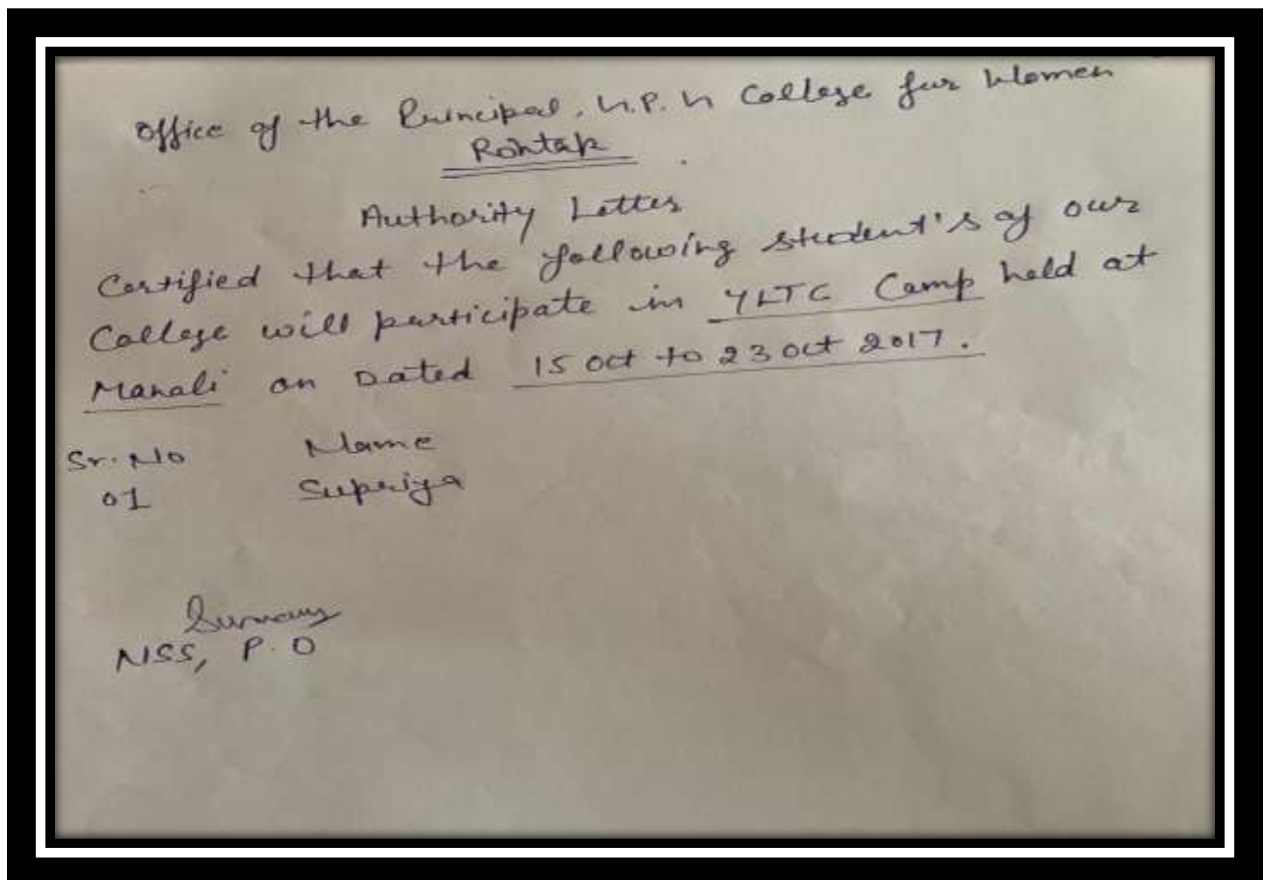 Office of the Principal, V.P.N College for Women
Rohtak
Authority Letter
Certified that the following student's of our
College will participate in YLTC Camp held at
Manali on Dated 15 Oct to 23 Oct 2017.
Sr. No Name
01 Supriya
NSS, P.O